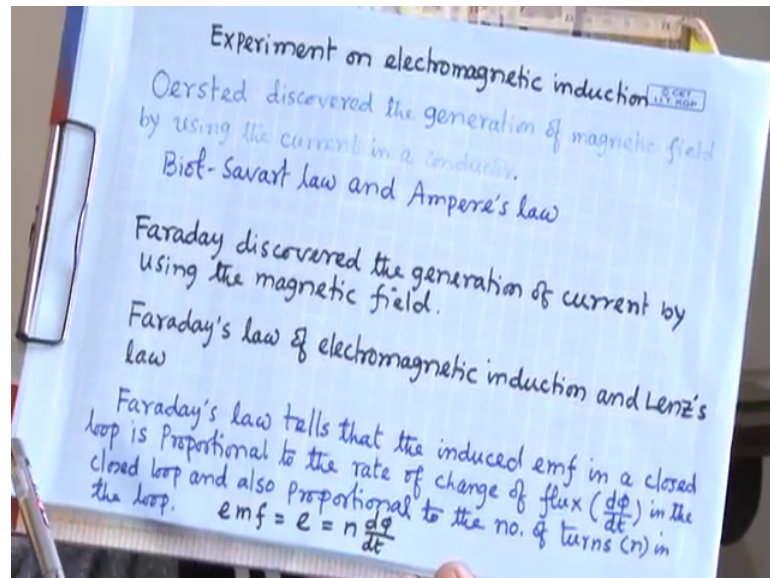 Experiment on electromagnetic induction
Oersted discovered the generation of magnetic field
by using the current in a conductor.
Biot-Savart law and Ampere's law
Faraday discovered the generation of current by
using the magnetic field.
Faraday's law of electromagnetic induction and Lenz's
law
Faraday's law tells that the induced emf in a closed
loop is Proportional to the rate of change of flux (dφ/dt) in the
closed loop and also Proportional to the no. of turns (n) in
the loop.
emf = e = n dφ/dt